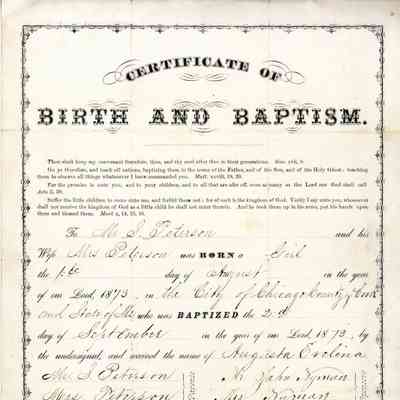 CERTIFICATE OF
BIRTH AND BAPTISM.
Thou shalt keep my covenant therefore, thou, and thy seed after thee in their generations. Gen. xvii, 9.
Go ye therefore, and teach all nations, baptizing them in the name of the Father, and of the Son, and of the Holy Ghost: teaching
them to observe all things whatsoever I have commanded you. Matt. xxviii, 19, 20.
For the promise is unto you, and to your children, and to all that are afar off, even as many as the Lord our God shall call
Acts 2, 39.
Suffer the little children to come unto me, and forbid them not: for of such is the kingdom of God. Verily I say unto you, whosoever
shall not receive the kingdom of God as a little child he shall not enter therein. And he took them up in his arms, put his hands upon
them and blessed them. Mark x, 14, 15, 16.
To Mr S. Peterson and his
Wife Mrs Peterson was BORN a Girl
the 1st day of August in the year
of our Lord, 1873, in the City of Chicago County of Cook
and State of Ill who was BAPTIZED the
day of September in the year of our Lord, 1873, by
the undersigned and received the name of Augusta Evelina
Mr S. Peterson Mr John Nyman
Mrs Peterson Mrs Nyman
Parents